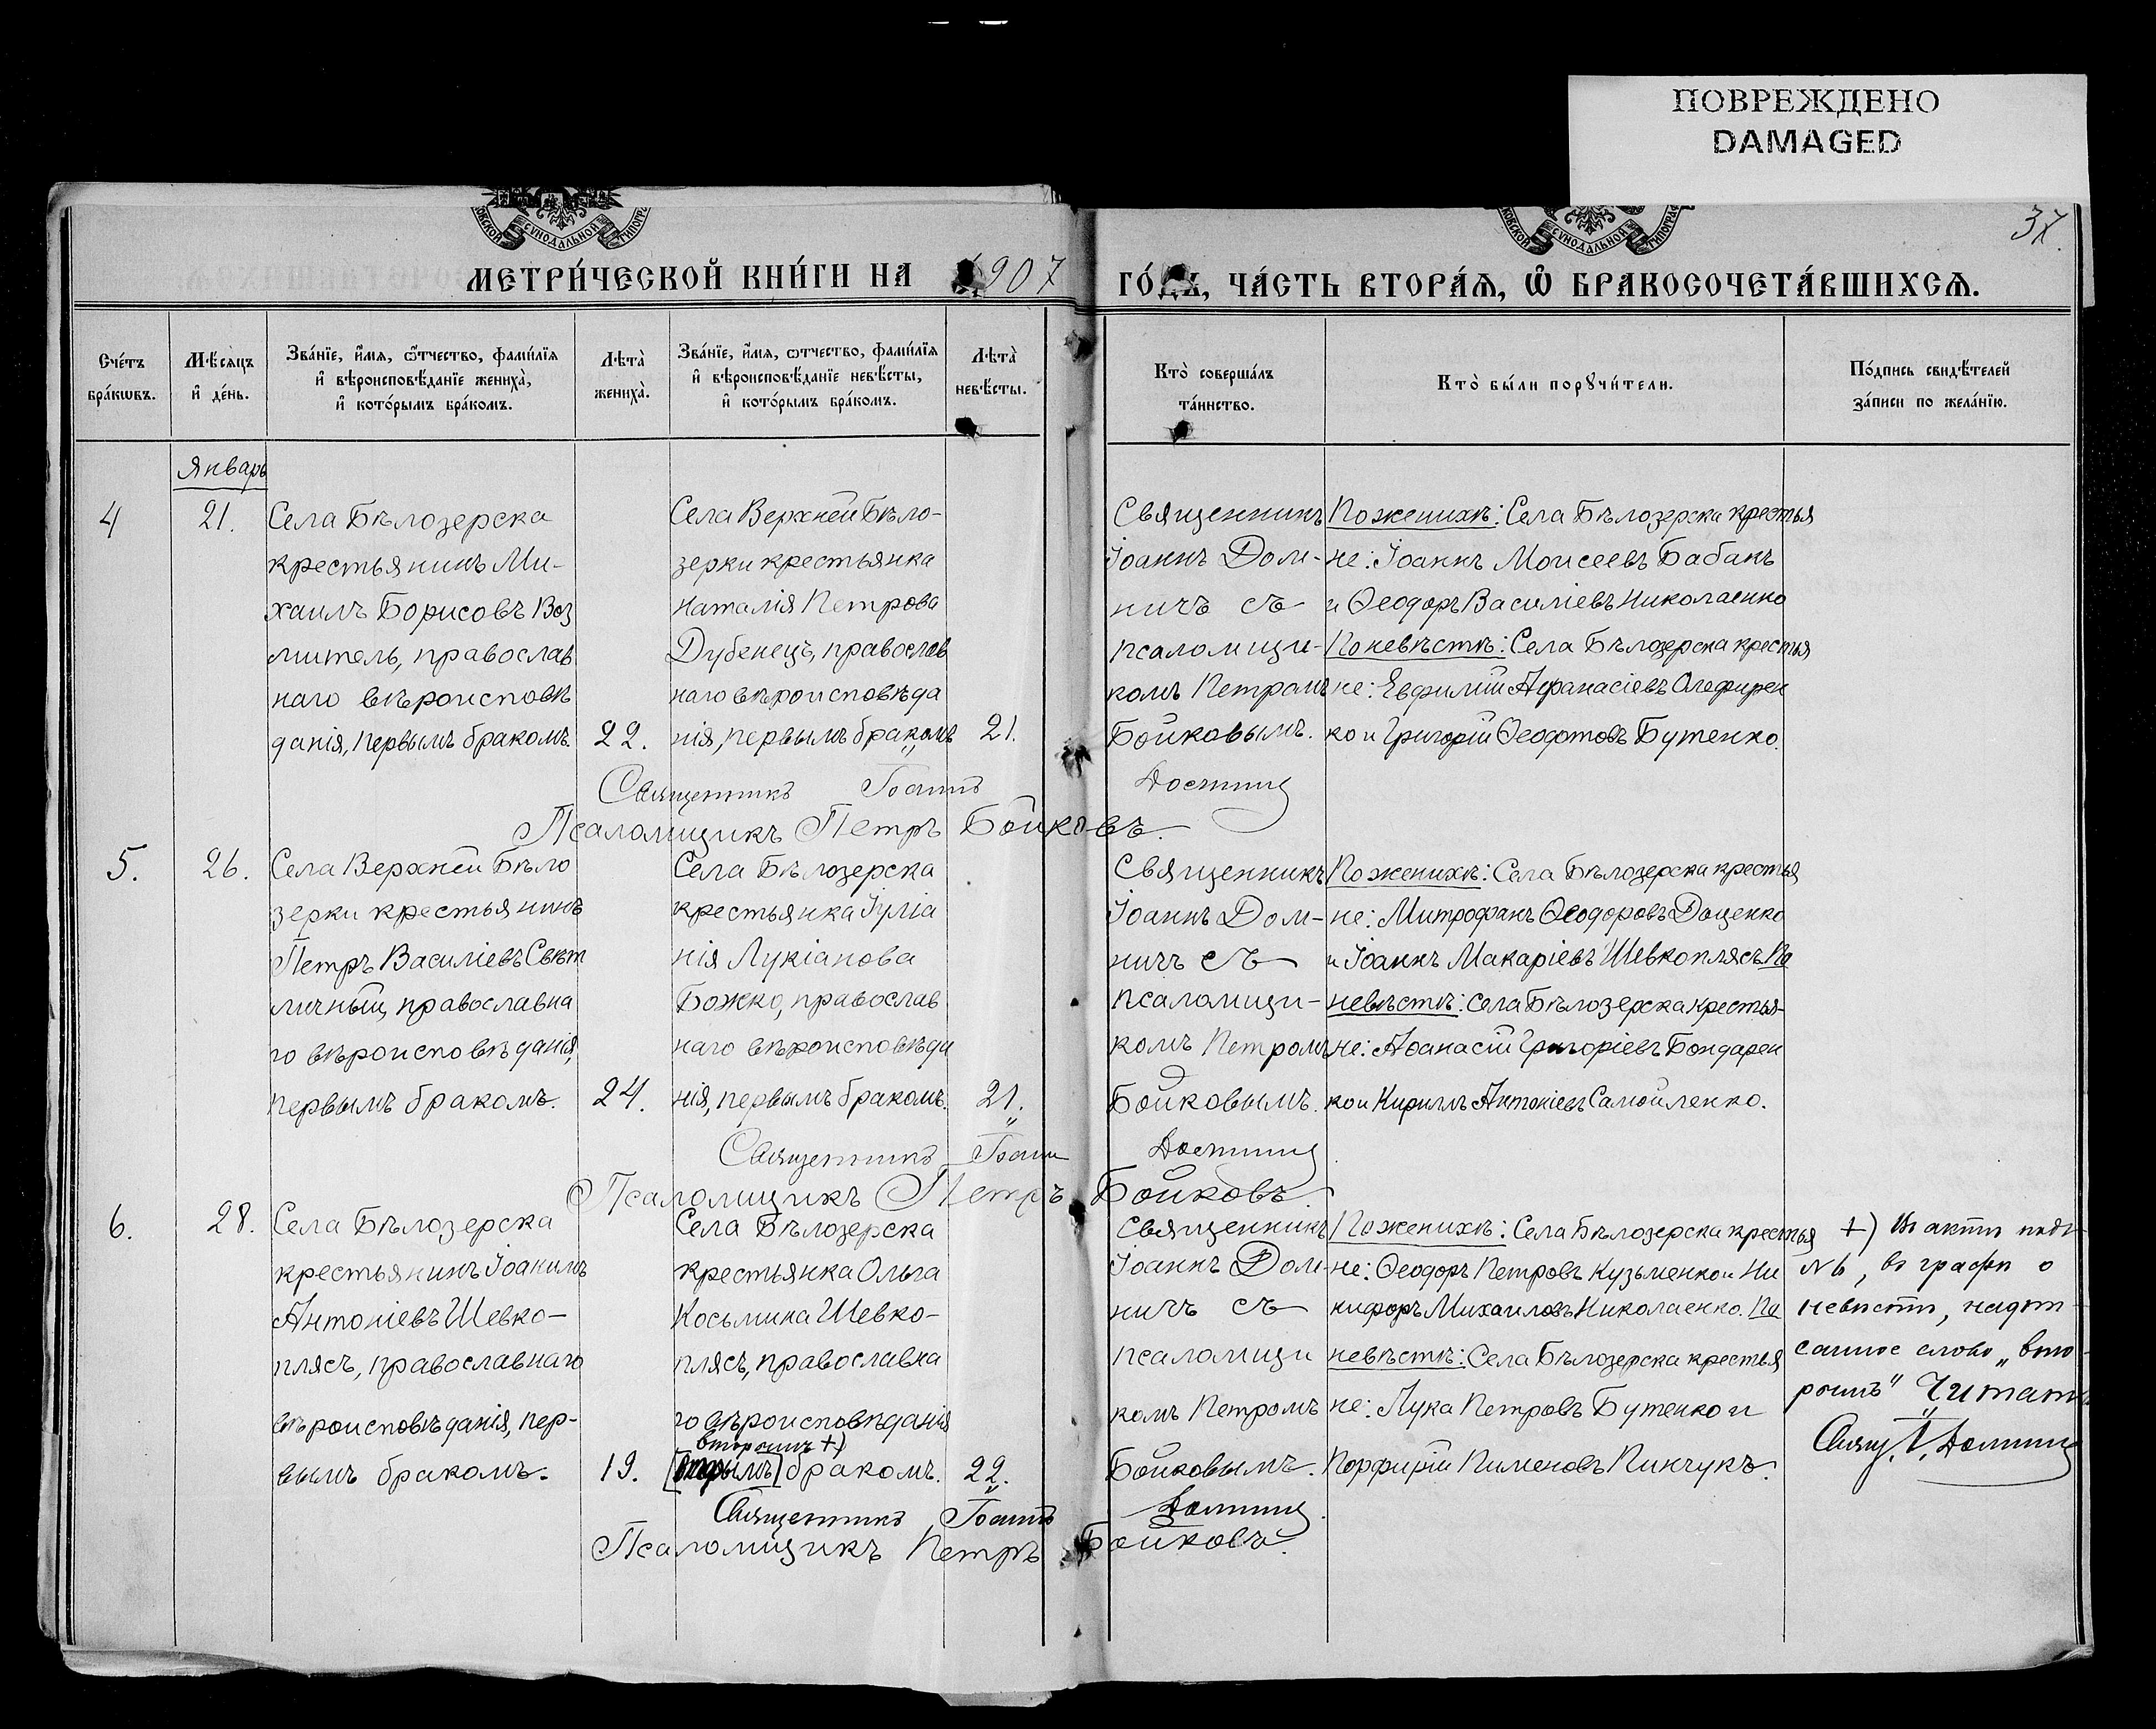 ПОВРЕЖДЕНО
DAMAGED
СѴНОДАЛЬНОЙ
СѴНОДАЛЬНОЙ
37.
МЕТРИ́ЧЕСКОЙ КНИ́ГИ НА 1907 ГО́ДЪ, ЧА́СТЬ ВТОРА́Ѧ, Ѽ БРАКОСОЧЕТА́ВШИХСѦ.
Сче́тъ
бра́кѡвъ.
Мѣ́сѧцъ
и҆ де́нь.
Зва́нїе, и҆́мѧ, ѻ҆́тчество, фами́лїѧ
и҆ вѣроисповѣ́данїе жениха̀,
и҆ кото́рымъ бра́комъ.
Лѣта̀
жениха̀.
Зва́нїе, и҆́мѧ, ѻтчество, фами́лїѧ
и҆ вѣроисповѣ́данїе невѣ́сты,
и҆ кото́рымъ бра́комъ.
Лѣта̀
невѣ́сты.
Кто̀ соверша́лъ
та́инство.
Кто̀ бы́ли порꙋчи́тели.
По́дпись свидѣ́телей
за́писи по жела́нїю.
Январь
4
21.
Села Бѣлозерска
крестьянинъ Ми-
хаилъ Борисовъ Воз
митель, православ
наго вѣроисповѣ
данія, первымъ бракомъ.
22.
Села Верхней Бѣло-
зерки крестьянка
Наталія Петрова
Дубенецъ, православ
наго вѣроисповѣда
нія, первымъ бракомъ
21.
Священникъ
Іоаннъ Дом-
ничъ съ
псаломщи-
комъ Петромъ
Бойковымъ.
По женихѣ: Села Бѣлозерска крестья
не: Іоаннъ Моисеевъ Бабакъ
и Ѳеодоръ Василіевъ Николаенко
По невѣстѣ: Села Бѣлозерска крестья
не: Евфимій Афанасіевъ Олефирен
ко и Григорій Ѳеодотовъ Бутенко.
Священникъ Іоаннъ Домничъ
Псаломщикъ Петръ Бойковъ.
5.
26.
Села Верхней Бѣло
зерки крестьянинъ
Петръ Василіевъ Свѣт
личный, православна
го вѣроисповѣданія,
первымъ бракомъ.
24.
Села Бѣлозерска
крестьянка Іуліа
нія Лукіанова
Божко, православ
наго вѣроисповѣда
нія, первымъ бракомъ.
21.
Священникъ
Іоаннъ Дом-
ничъ съ
псаломщи-
комъ Петромъ
Бойковымъ.
По женихѣ: Села Бѣлозерска крестья
не: Митрофанъ Ѳеодоровъ Доценко
и Іоаннъ Макаріевъ Шевкоплясъ По
невѣстѣ: Села Бѣлозерска крестья-
не: Аѳанасій Григоріевъ Бондарен
ко и Кириллъ Антоніевъ Самойленко.
Священникъ Іоаннъ Домничъ
Псаломщикъ Петръ Бойковъ
6.
28.
Села Бѣлозерска
крестьянинъ Іоакимъ
Антоніевъ Шевко-
плясъ, православнаго
вѣроисповѣданія, пер-
вымъ бракомъ.
19.
Села Бѣлозерска
крестьянка Ольга
Косьмина Шевко-
плясъ, православна
го вѣроисповѣданія
вторымъ +)
бракомъ.
22.
Священникъ
Іоаннъ Дом-
ничъ съ
псаломщи
комъ Петромъ
Бойковымъ.
По женихѣ: Села Бѣлозерска крестья
не: Ѳеодоръ Петровъ Кузьменко и Ни
кифоръ Михаиловъ Николаенко. По
невѣстѣ: Села Бѣлозерска крестья
не: Лука Петровъ Бутенко и
Порфирій Пименовъ Пинчукъ.
+) Въ актѣ подъ
№6, въ графѣ о
невѣстѣ, надпи-
санное слово „вто-
рымъ" Читать
Свящ. І. Домничъ
Священникъ Іоаннъ Домничъ.
Псаломщикъ Петръ Бойковъ.